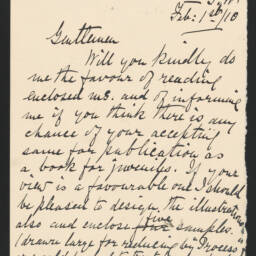 Feb: 1st/10
Gentlemen
Will you kindly do
me the favour of reading
enclosed ms. and of informing
me if you think there is any
chance of your accepting
same for publication as
a book for juveniles. If your
view is a favourable one I should
be pleased to design the illustrations
also and enclose five samples.
(drawn large for reducing by "Process"